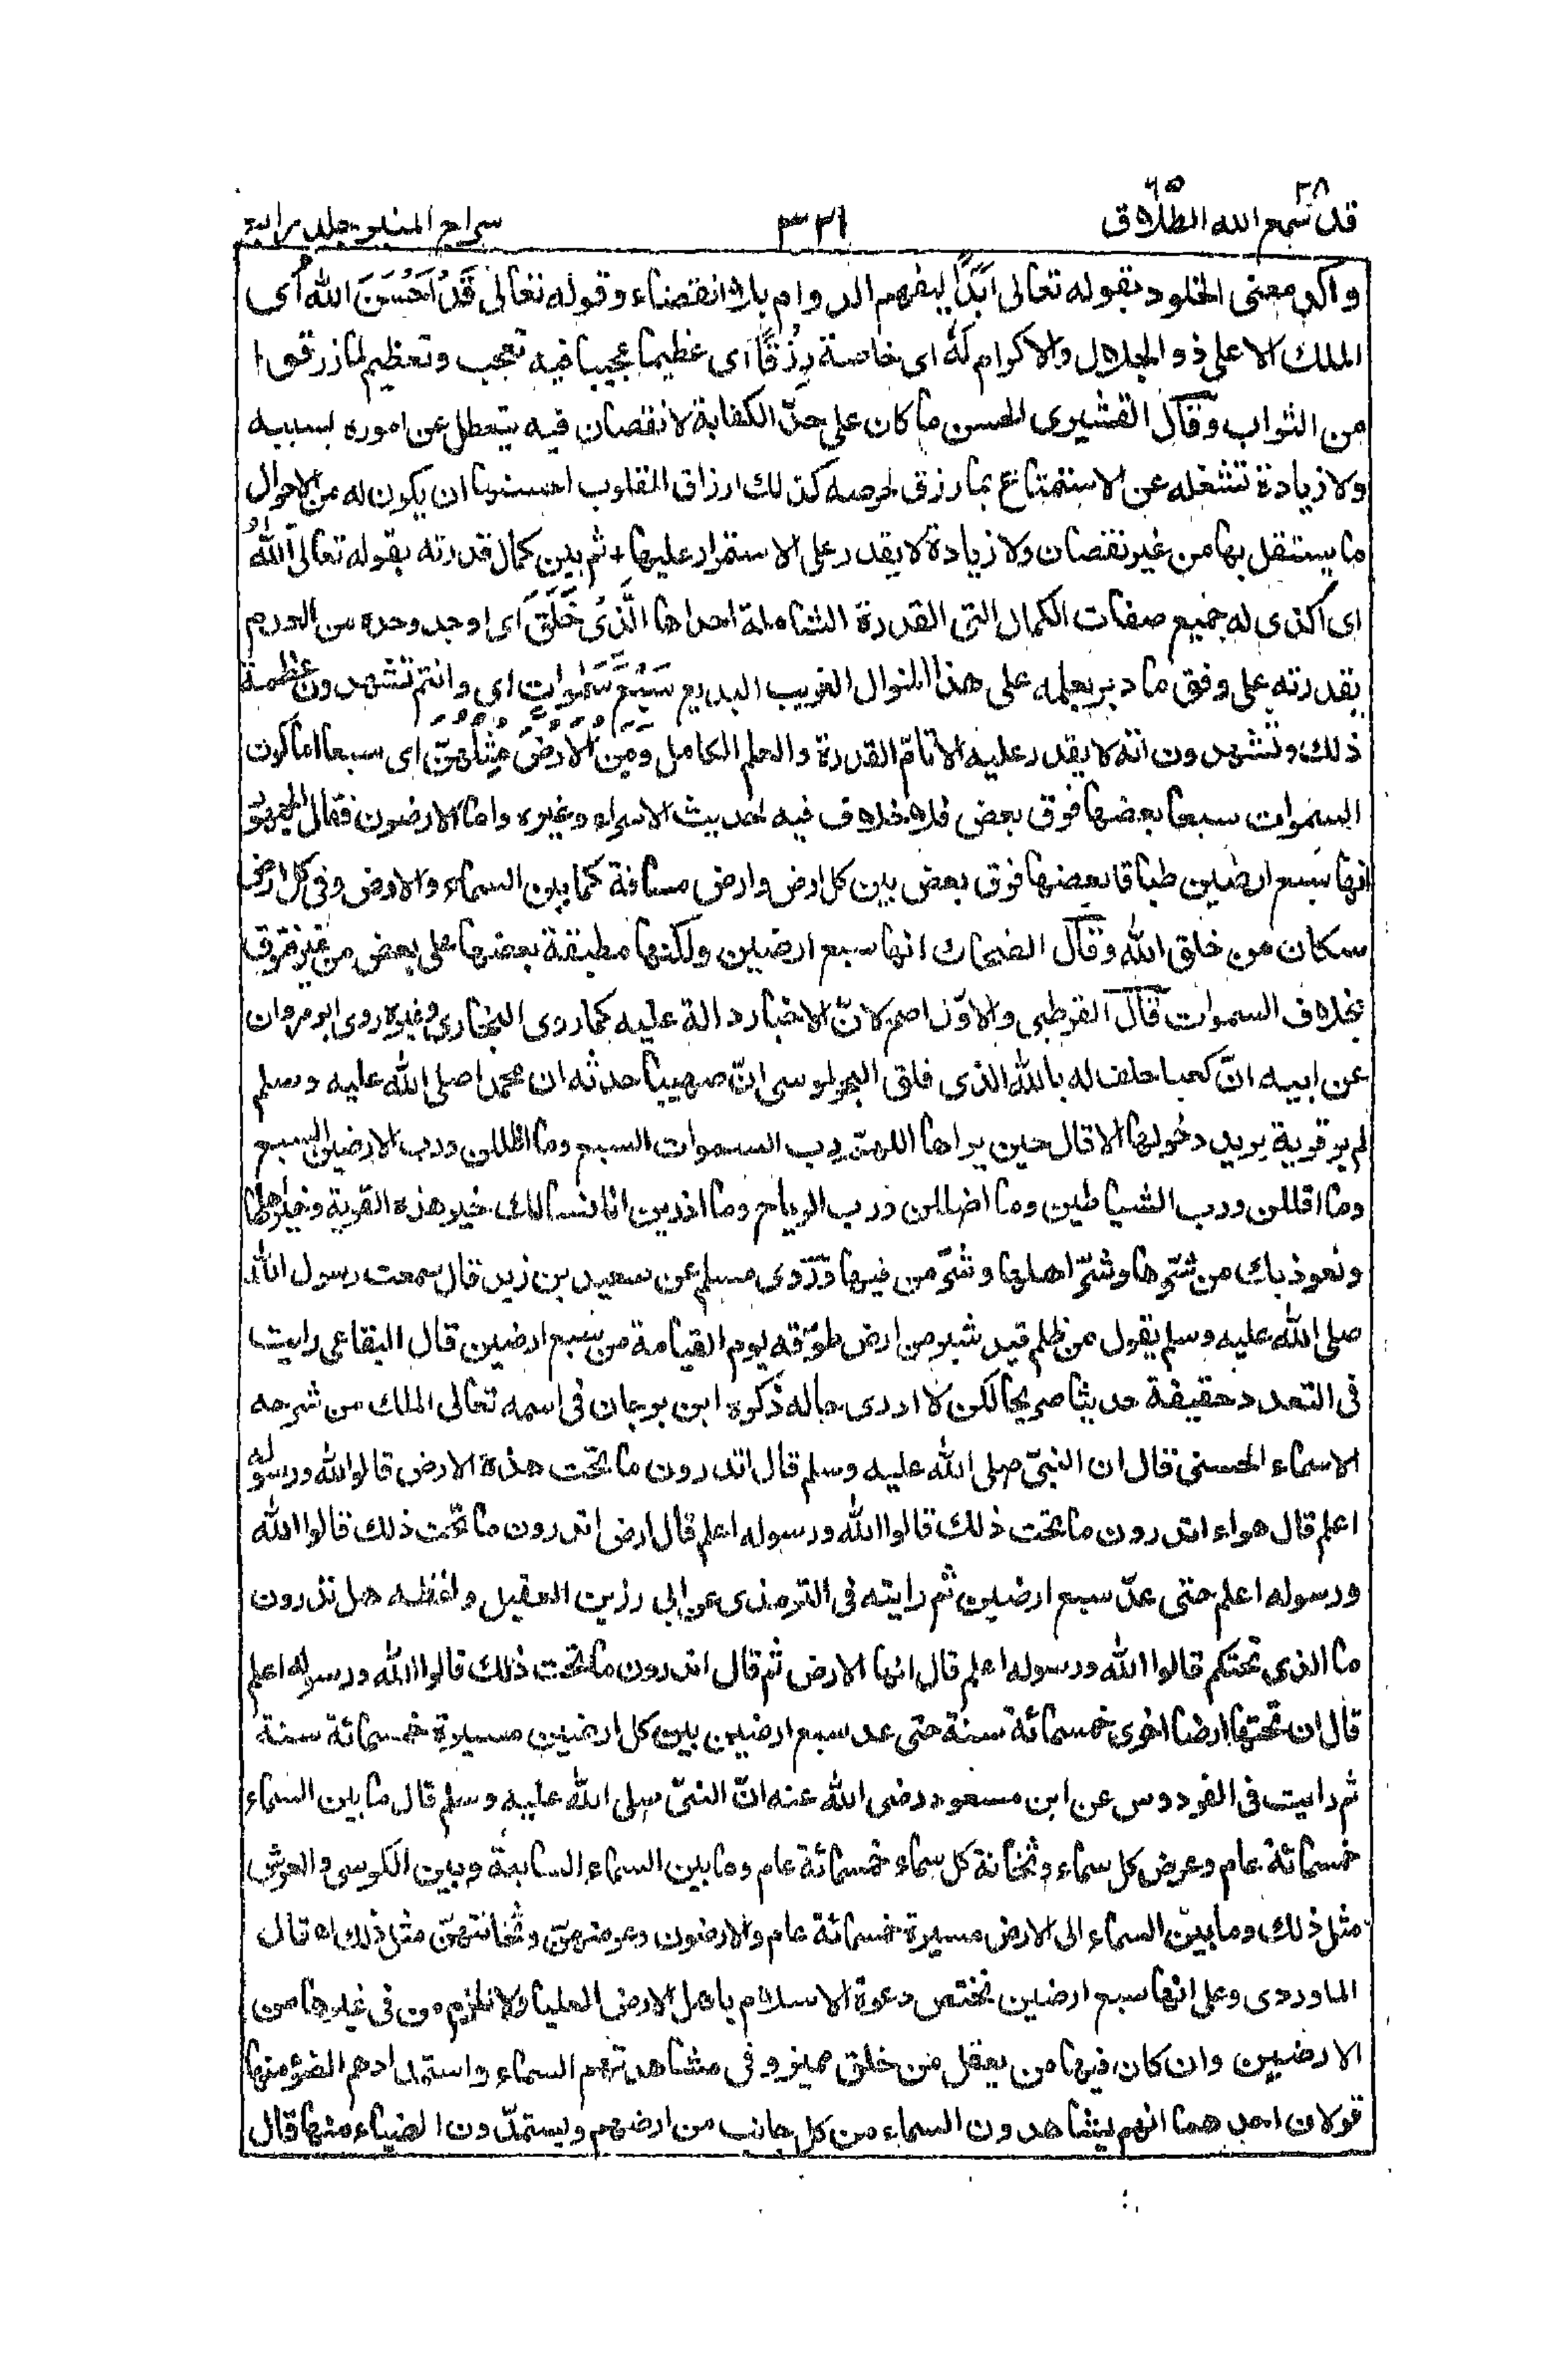 ٢٨ ٦٥
قد سمع الله الطلاق ٣٢١ سراج المنير جلد رابع
واكد معنى الخلود بقوله تعالى اَبَدًا ليفهم الدوام بلا انقضاء وقوله تعالى قَدْ اَحْسَنَ اللهُ اى
الملك الاعلى ذو الجلال والاكرام لَهٗ اى خاصة رِزْقًا اى عظيما عجيبا فيه تعجب وتعظيم لما رزقوا
من الثواب وقال القشيرى الحسن ما كان على حدّ الكفاية لا نقصان فيه يتعطل عن اموره لسببه
ولا زيادة تشغله عن الاستمتاع بما رزق لحرصه كذلك ارزاق القلوب احسنها ان يكون له من الاحوال
ما يستقل بها من غير نقصان ولا زيادة لا يقدر على الاستمرار عليها + ثم بين كمال قدرته بقوله تعالى اَللهُ
اى الذى له جميع صفات الكمال التى القدرة الشاملة احداها الَّذِىْ خَلَقَ اى اوجد وحده من العدم
بقدرته على وفق ما دبر بعلمه على هذا المنوال الغريب البديع سَبْعَ سَمٰوَاتٍ اى وانتم تشهدون عظمة
ذلك وتشهدون انه لا يقدر عليه الا تامّ القدرة والعلم الكامل وَمِنَ الْاَرْضِ مِثْلَهُنَّ اى سبعا اما كون
السموات سبعا بعضها فوق بعض فلا خلاف فيه لحديث الاسراء وغيره واما الارضون فقال الجمهور
انها سبع ارضين طباقا بعضها فوق بعض بين كل ارض وارض مسافة كما بين السماء والارض وفى كل ارض
سكان من خلق الله وقال الضحاك انها سبع ارضين ولكنها مطبقة بعضها على بعض من غير فتوق
بخلاف السموات قال القرطبى والاوّل اصح لانّ الاخبار دالة عليه كما روى البخارى وغيره روى ابو مروان
عن ابيه انّ كعبا حلف له بالله الذى فلق البحر لموسى انّ صهيبا حدثه ان محمدا صلى الله عليه وسلم
لم ير قرية يريد دخولها الا قال حين يراها اللهمّ رب السموات السبع وما اظللن ورب الارضين السبع
وما اقللن ورب الشياطين وما اضللن ورب الرياح وما اذرين انا نسالك خير هذه القرية وخير اهلها
ونعوذ بك من شرّها وشرّ اهلها وشرّ من فيها وروى مسلم عن سعيد بن زيد قال سمعت رسول الله
صلى الله عليه وسلم يقول من ظلم قيد شبر من ارض طوّقه يوم القيامة من سبع ارضين قال البقاعى رايت
فى التعدد حقيقة حديثا صريحا لكن لا ادرى حاله ذكره ابن برجان فى اسمه تعالى الملك من شرحه
الاسماء الحسنى قال ان النبىّ صلى الله عليه وسلم قال اتدرون ما تحت هذه الارض قالوا الله ورسوله
اعلم قال هواء اتدرون ما تحت ذلك قالوا الله ورسوله اعلم قال ارض اتدرون ما تحت ذلك قالوا الله
ورسوله اعلم حتى عدّ سبع ارضين ثم رايته فى الترمذى عن ابى رزين العقيل ولفظه هل تدرون
ما الذى تحتكم قالوا الله ورسوله اعلم قال انها الارض ثم قال اتدرون ما تحت ذلك قالوا الله ورسوله اعلم
قال ان تحتها ارضا اخرى خمسمائة سنة حتى عد سبع ارضين بين كل ارضين مسيرة خمسمائة سنة
ثم رايت فى الفردوس عن ابن مسعود رضى الله عنه انّ النبىّ صلى الله عليه وسلم قال ما بين السماء
خمسمائة عام وعرض كل سماء وثخانة كل سماء خمسمائة عام وما بين السماء السابعة وبين الكرسى والعرش
مثل ذلك وما بين السماء الى الارض مسيرة خمسمائة عام والارضون وعرضهنّ وثخانتهنّ مثل ذلك اه قال
الماوردى وعلى انها سبع ارضين تختص دعوة الاسلام باهل الارض العليا ولا تلزم من فى غيرها من
الارضين وان كان فيها من يعقل من خلق مميز وفى مشاهدتهم السماء واستمدادهم الضوء منها
قولان احدهما انهم يشاهدون السماء من كل جانب من ارضهم ويستمدّون الضياء منها قال